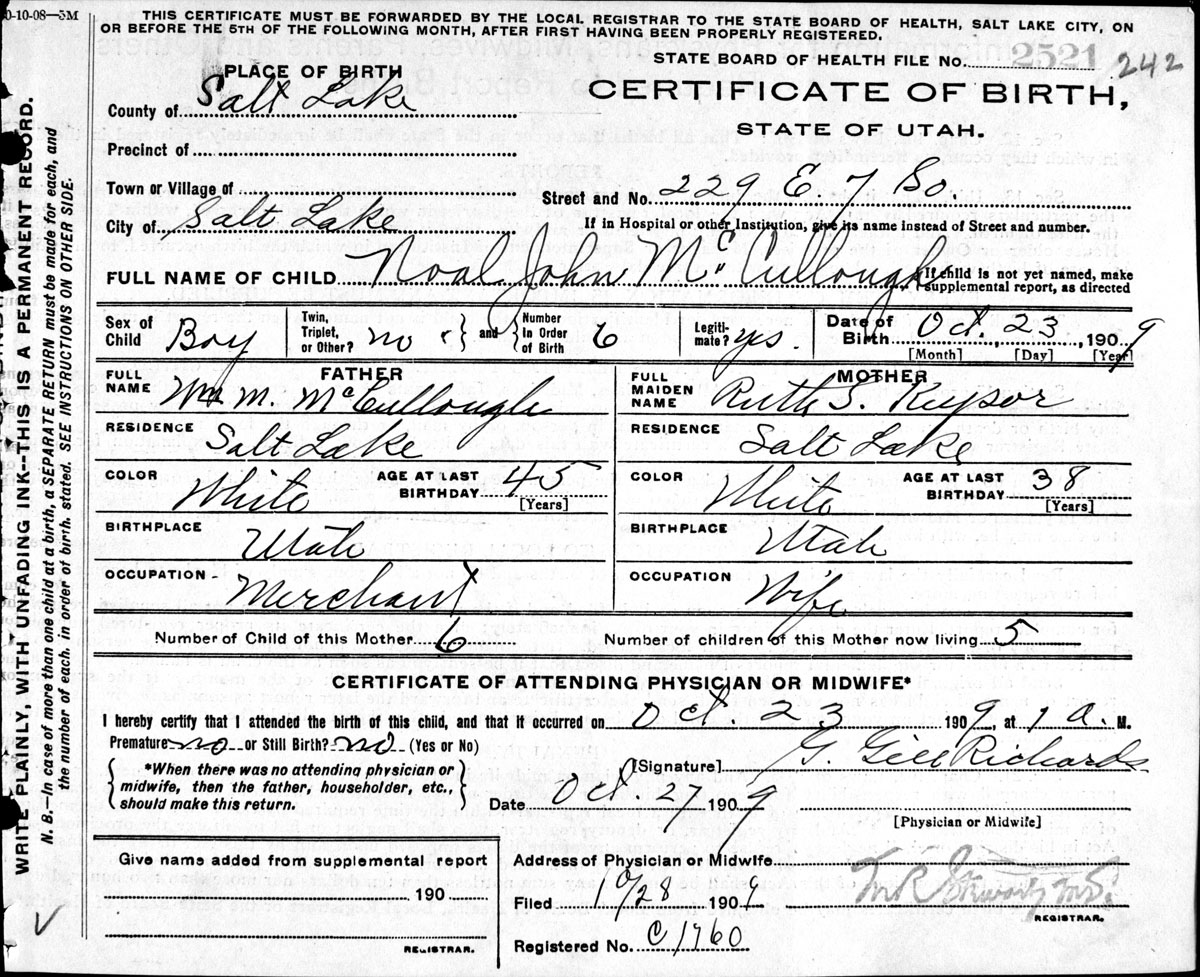 0-10-08—5M
THIS CERTIFICATE MUST BE FORWARDED BY THE LOCAL REGISTRAR TO THE STATE BOARD OF HEALTH, SALT LAKE CITY, ON
OR BEFORE THE 5TH OF THE FOLLOWING MONTH, AFTER FIRST HAVING BEEN PROPERLY REGISTERED.
STATE BOARD OF HEALTH FILE No. 2521 242
PLACE OF BIRTH
CERTIFICATE OF BIRTH,
STATE OF UTAH.
County of Salt Lake
Precinct of
Town or Village of
Street and No. 229 E. 7 So.
City of Salt Lake
If in Hospital or other Institution, give its name instead of Street and number.
FULL NAME OF CHILD Noal John McCullough
If child is not yet named, make
supplemental report, as directed
Sex of Child Boy
Twin, Triplet, or Other? no
and Number in Order of Birth 6
Legiti-mate? yes.
Date of Birth Oct. 23, 1909
[Month] [Day] [Year]
FATHER
FULL NAME Wm M. McCullough
RESIDENCE Salt Lake
COLOR White
AGE AT LAST BIRTHDAY 45
[Years]
BIRTHPLACE Utah
OCCUPATION - Merchant
MOTHER
FULL MAIDEN NAME Ruth S. Keysor
RESIDENCE Salt Lake
COLOR White
AGE AT LAST BIRTHDAY 38
[Years]
BIRTHPLACE Utah
OCCUPATION Wife
Number of Child of this Mother 6
Number of children of this Mother now living 5
CERTIFICATE OF ATTENDING PHYSICIAN OR MIDWIFE*
I hereby certify that I attended the birth of this child, and that it occurred on Oct. 23 1909, at 1 a. M.
Premature no or Still Birth? no (Yes or No)
*When there was no attending physician or
midwife, then the father, householder, etc.,
should make this return.
[Signature] G. Gill Richards
Date Oct. 27 1909
[Physician or Midwife]
Give name added from supplemental report
190
REGISTRAR.
Address of Physician or Midwife
Filed 10/28 1909
REGISTRAR.
Registered No. C1760
WRITE PLAINLY, WITH UNFADING INK--THIS IS A PERMANENT RECORD.
N. B.—In case of more than one child at a birth, a SEPARATE RETURN must be made for each, and
the number of each, in order of birth, stated. SEE INSTRUCTIONS ON OTHER SIDE.